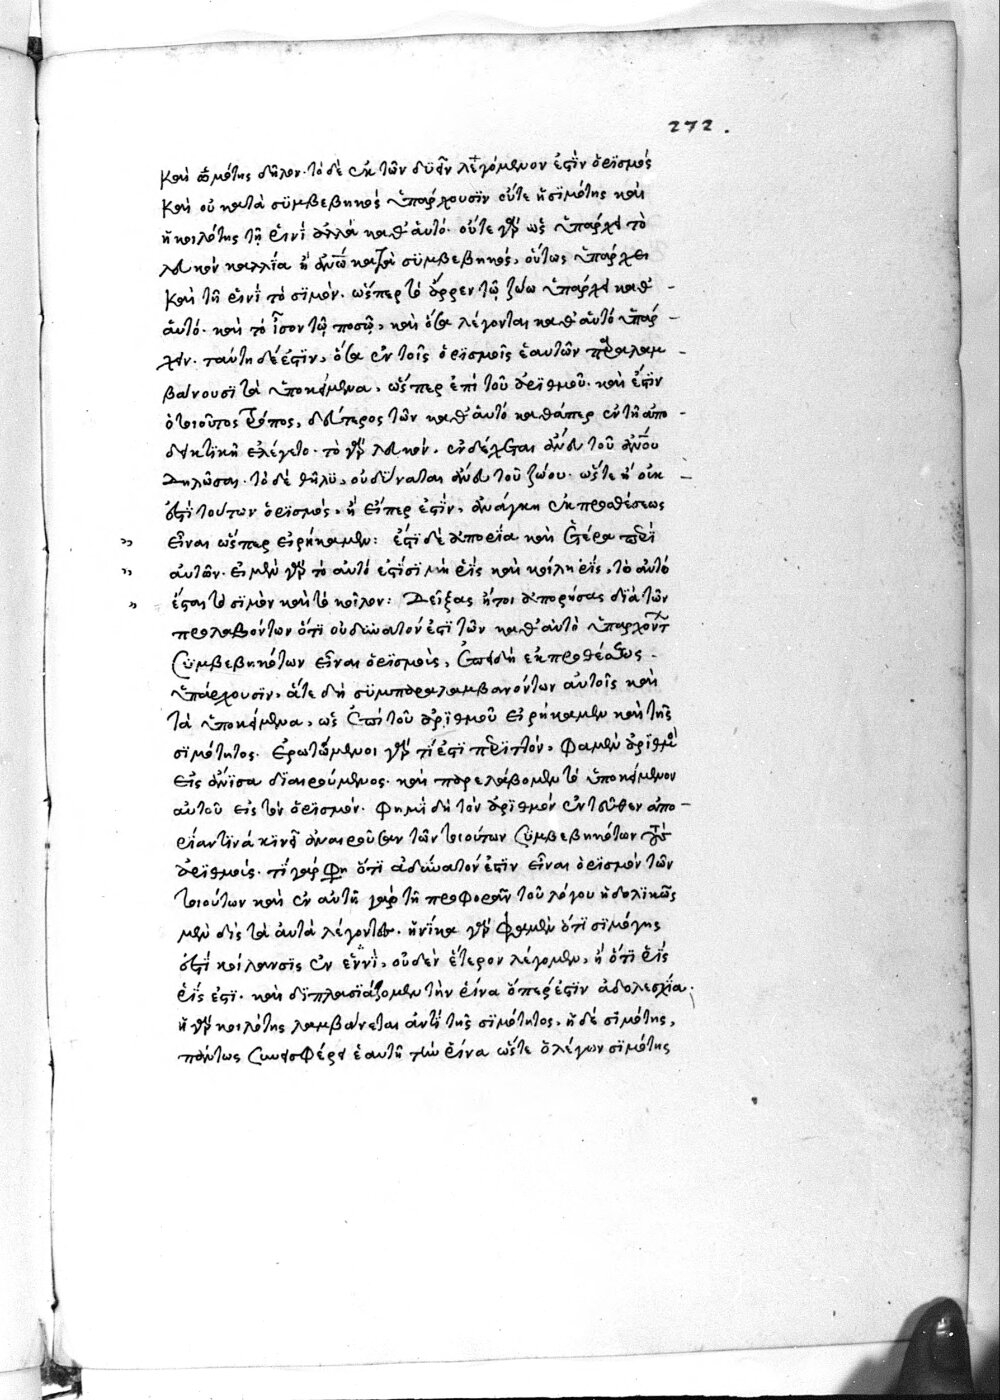 272.
καὶ σιμότης δῆλον· τὸ δὲ ἐκ τῶν δυεῖν λεγόμενον ἐστὶν ὁρισμός
καὶ οὐ κατὰ συμβεβηκὸς ὑπάρχουσιν οὔτε ἡ σιμότης καὶ
ἡ κοιλότης τῇ ῥινὶ ἀλλὰ καθ' αὑτό· οὔτε γὰρ ὡς ὑπάρχει τὸ
λευκὸν καλλία ἢ ἀνῶ κατὰ συμβεβηκός, οὕτως ὑπάρχει
καὶ τῇ ῥινὶ τὸ σιμόν· ὥσπερ τὸ ἄρρεν τῷ ζώω ὑπάρχει καθ' -
αὑτό· καὶ τὸ ἶσον τῷ ποσῷ, καὶ ὅσα λέγονται καθ' αὑτὸ ὑπάρ -
χειν. ταύτη δέ ἐστιν, ὅσα ἐν τοῖς ὁρισμοῖς ἑαυτῶν παραλαμ -
βάνουσι τὰ ὑποκείμενα, ὥσπερ ἐπὶ τοῦ ἀριθμοῦ· καὶ ἔστιν
ὁ τοιοῦτος τρόπος, δεύτερος τῶν καθ' αὑτὸ καθάπερ ἐν τῇ ἀπο -
δεικτικῇ ἐλέγετο· τὸ γὰρ λευκόν, ἐνδέχεται ἄνευ τοῦ ἀνου
δηλῶσαι· τὸ δὲ θῆλυ, οὐ δύναται ἄνευ τοῦ ζώου· ὥστε ἢ οὐκ -
ἔστι τούτων ὁρισμός, ἢ εἴπερ ἐστίν, ἀνάγκη ἐκ προσθέσεως
» εἶναι ὥσπερ εἰρήκαμεν: ἔστι δὲ ἀπορία καὶ ἑτέρα περὶ
» αὐτῶν· εἰ μὲν γὰρ τὸ αὐτό ἐστι σιμὴ ῥὶς καὶ κοίλη ῥίς, τὸ αὐτὸ
» ἔσται τὸ σιμὸν καὶ τὸ κοῖλον: Δείξας ἤτοι ἀπορήσας διὰ τῶν
προλαβόντων ὅτι οὐ δυνατόν ἐστι τῶν καθ' αὑτὸ ὑπαρχόντ
συμβεβηκότων εἶναι ὁρισμούς, ἐπειδὴ ἐκ προσθέσεως
ὑπάρχουσιν, ἅτε δὴ συμπαραλαμβανόντων αὐτοῖς καὶ
τὰ ὑποκείμενα, ὡς ἐπὶ τοῦ ἀριθμοῦ εἰρήκαμεν καὶ τῆς
σιμότητος. ἐρωτώμενοι γὰρ τί ἐστι περιττόν, φαμὲν ἀριθμὸ
εἰς ἄνισα διαιρούμενος· καὶ παρελάβομεν τὸ ὑποκείμενον
αὐτοῦ εἰς τὸν ὁρισμόν. φημὶ δὴ τὸν ἀριθμὸν ἐντεῦθεν ἀπο -
ρίαν τινὰ κινεῖ ἀναιροῦσαν τῶν τοιούτων συμβεβηκότων τοὺς
ὁρισμούς. τί γάρ φη ὅτι ἀδύνατόν ἐστιν εἶναι ὁρισμὸν τῶν
τοιούτων καὶ ἐν αὐτῇ γὰρ τῇ προφορᾷ τοῦ λόγου ἠδολικῶς
μὲν δὶς τὰ αὐτὰ λέγοντες. ἡνίκα γὰρ φαμὲν ὅτι σιμότης
ἐστὶ κοίλανσις ἐν ῥινὶ, οὐδὲν ἕτερον λέγομεν, ἢ ὅτι ῥὶς
ῥίς ἐστι· καὶ διπλασιάζομεν τὴν ῥῖνα ὅπερ ἐστὶν ἀδολεσχία.
ἡ γὰρ κοιλότης λαμβάνεται ἀντὶ τῆς σιμότητος, ἡ δὲ σιμότης,
πάντως συνεισφέρει ἑαυτῇ τὴν ῥῖνα ὥστε ὁ λέγων σιμότης